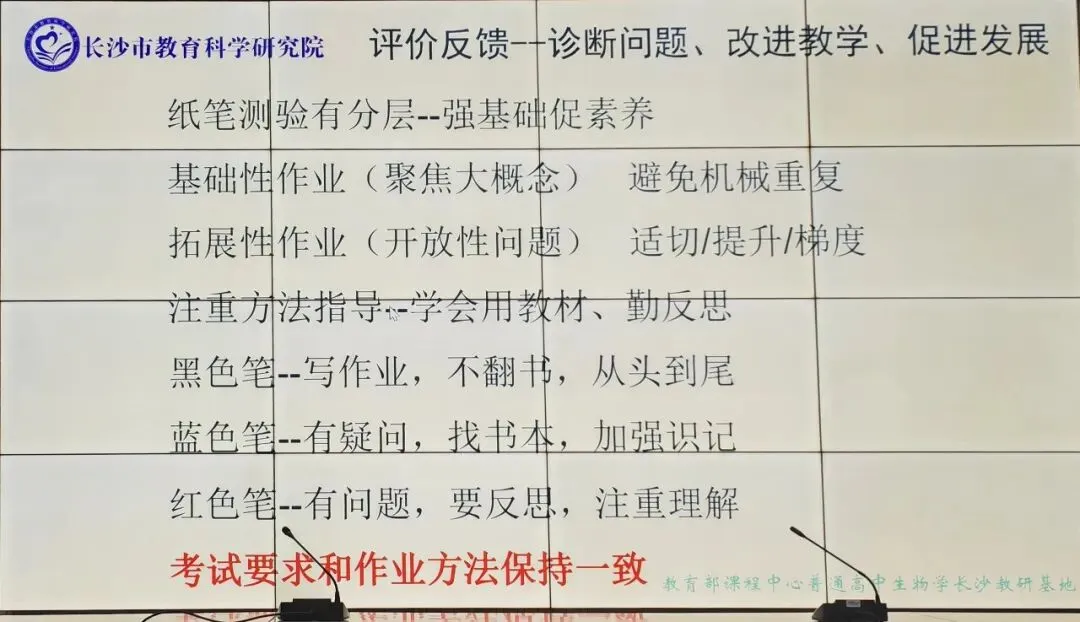 长沙市教育科学研究院
评价反馈--诊断问题、改进教学、促进发展
纸笔测验有分层--强基础促素养
基础性作业（聚焦大概念） 避免机械重复
拓展性作业（开放性问题） 适切/提升/梯度
注重方法指导--学会用教材、勤反思
黑色笔--写作业，不翻书，从头到尾
蓝色笔--有疑问，找书本，加强识记
红色笔--有问题，要反思，注重理解
考试要求和作业方法保持一致
教育部课程中心普通高中生物学长沙教研基地